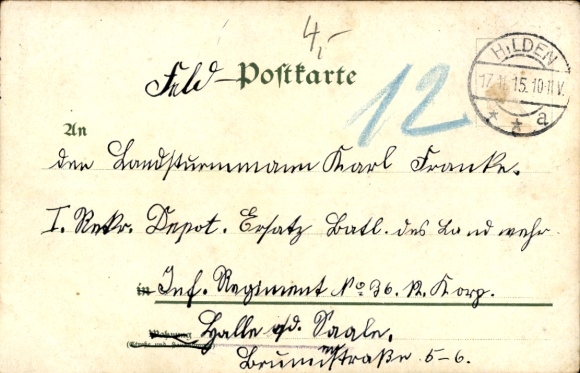 4,-
HILDEN
17.11.15.10-11V.
* * a
Feld-Postkarte
12
An
den Landsturmmann Karl Franke.
I. Rekr. Depot. Ersatz Batl. des Landwehr
in Inf. Regiment No 36. 12. Korp.
Wohnung Halle a/d. Saale.
Brunnenstraße 5-6.